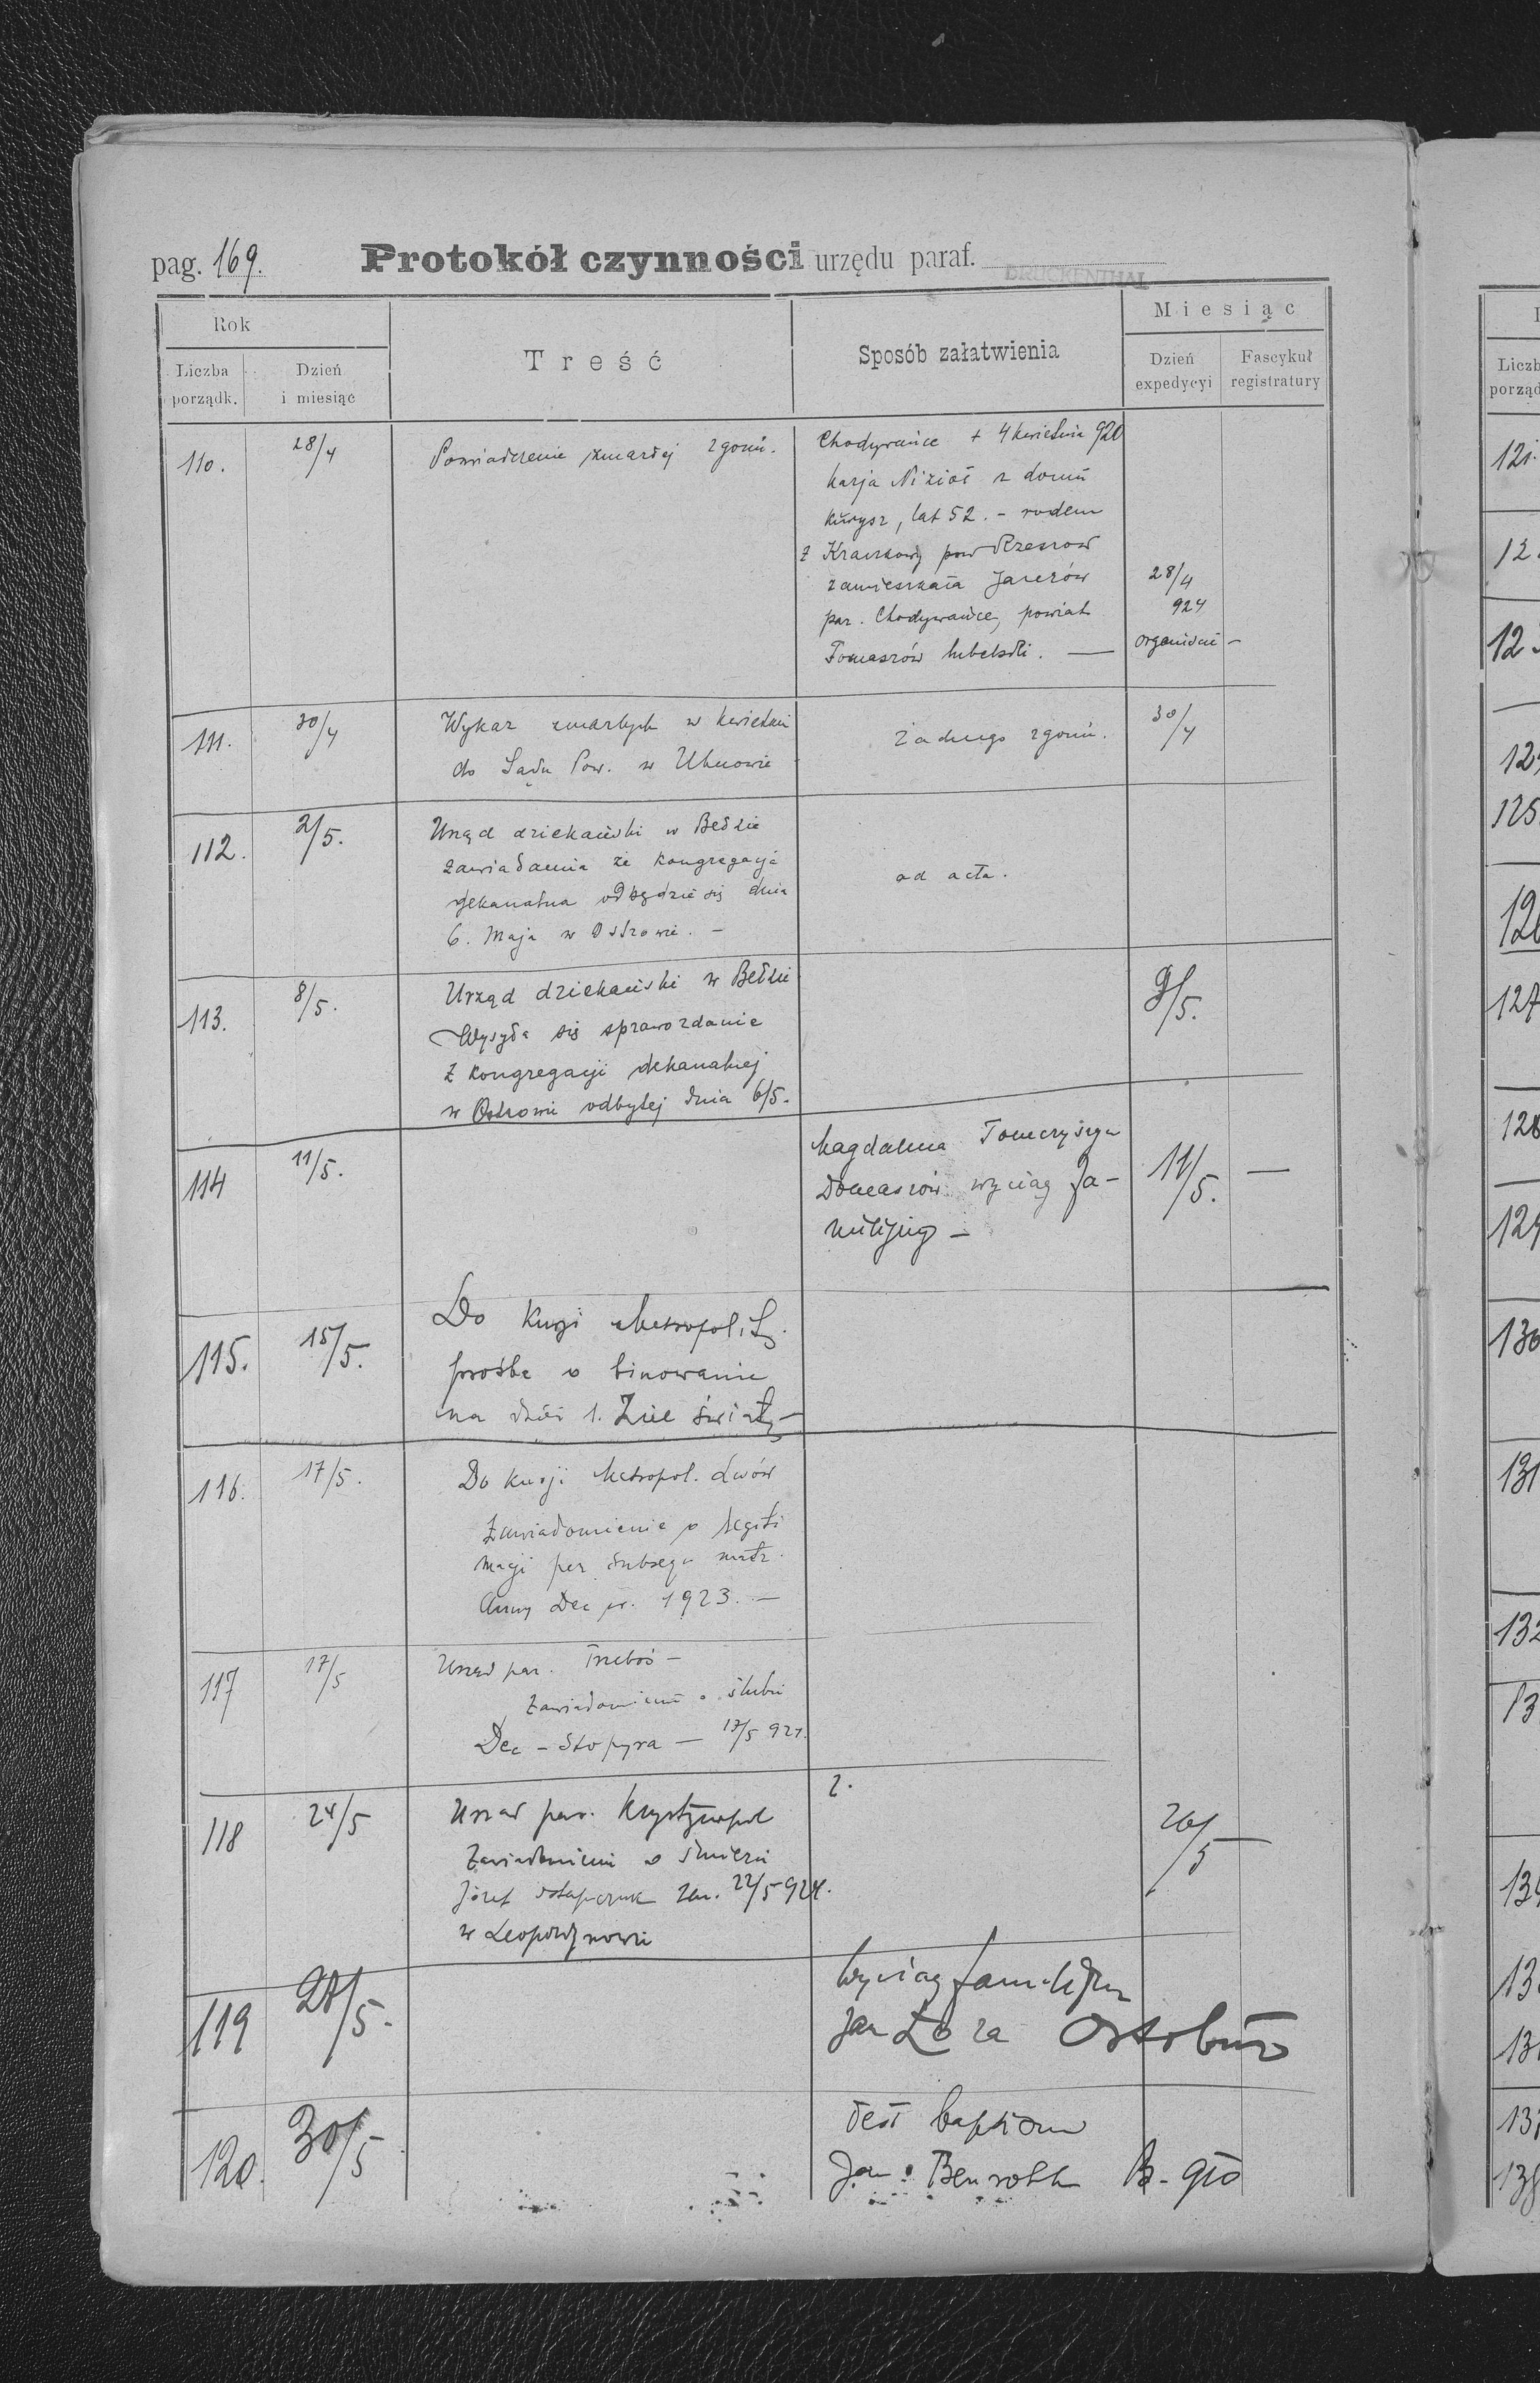 pag. 169.
Protokół czynności urzędu paraf.
BRUCKENTHAL
Rok
Liczba porządk.
Dzień i miesiąc
Treść
Sposób załatwienia
Miesiąc
Dzień expedycyi
Fascykuł registratury
110.
28/4
Poświadczenie zmarłej zgonu.
Chodywańce + 4 kwietnia 920
Marja Nizioł z domu
Kurysz, lat 52. - rodem
z Kraczkowy pow Rzeszow
zamieszkała Jarczów
par. Chodywańce, powiat
Tomaszów lubelski. —
28/4
924
111.
30/4
Wykaz zmarłych w kwietniu
do Sądu Pow. w Uhnowie
żadnego zgonu.
30/4
112.
2/5.
Urząd dziekański w Bełzie
zawiadamia że kongregacja
dekanalna odbędzie się dnia
6. Maja w Ostrowie. -
ad acta.
113.
8/5.
Urząd dziekański w Bełzie
Wysyła się sprawozdanie
z kongregacji dekanalnej
w Ostrowie odbytej dnia 6/5.
9/5.
114
11/5.
Magdalena
wyciąg fa-
milijny —
11/5.
—
115.
15/5.
Do Kurji Metropolit.
prośba o binowanie
na dzień 1. Ziel świąt —
116.
17/5.
Do Kurji Metropol. Lwów
Zawiadomienie o legiti
macji per subsequ matr.
Anny Dec ur. 1923. —
117
17/5
Urząd par. Trzeboś —
Zawiadomienie o ślubie
Dec - Stopyra — 17/5 924.
118
24/5
Urząd par. Krystynopol
Zawiadomienie o śmierci
Józef Ostapczuk zm. 22/5 924.
w Leopoldynowie
2.
26/5
119
28/5.
Wyciąg familijny
Jan Łoza
120.
30/5
Test baptism
Jan
121.
12
12
127
128
129
130
131
132
13